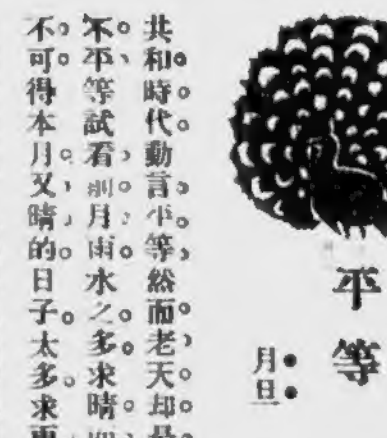 平等
月旦
共和時代動言平等然而老天却
不平等試看前月雨水之多求晴
不可得本月又晴的日子太多求